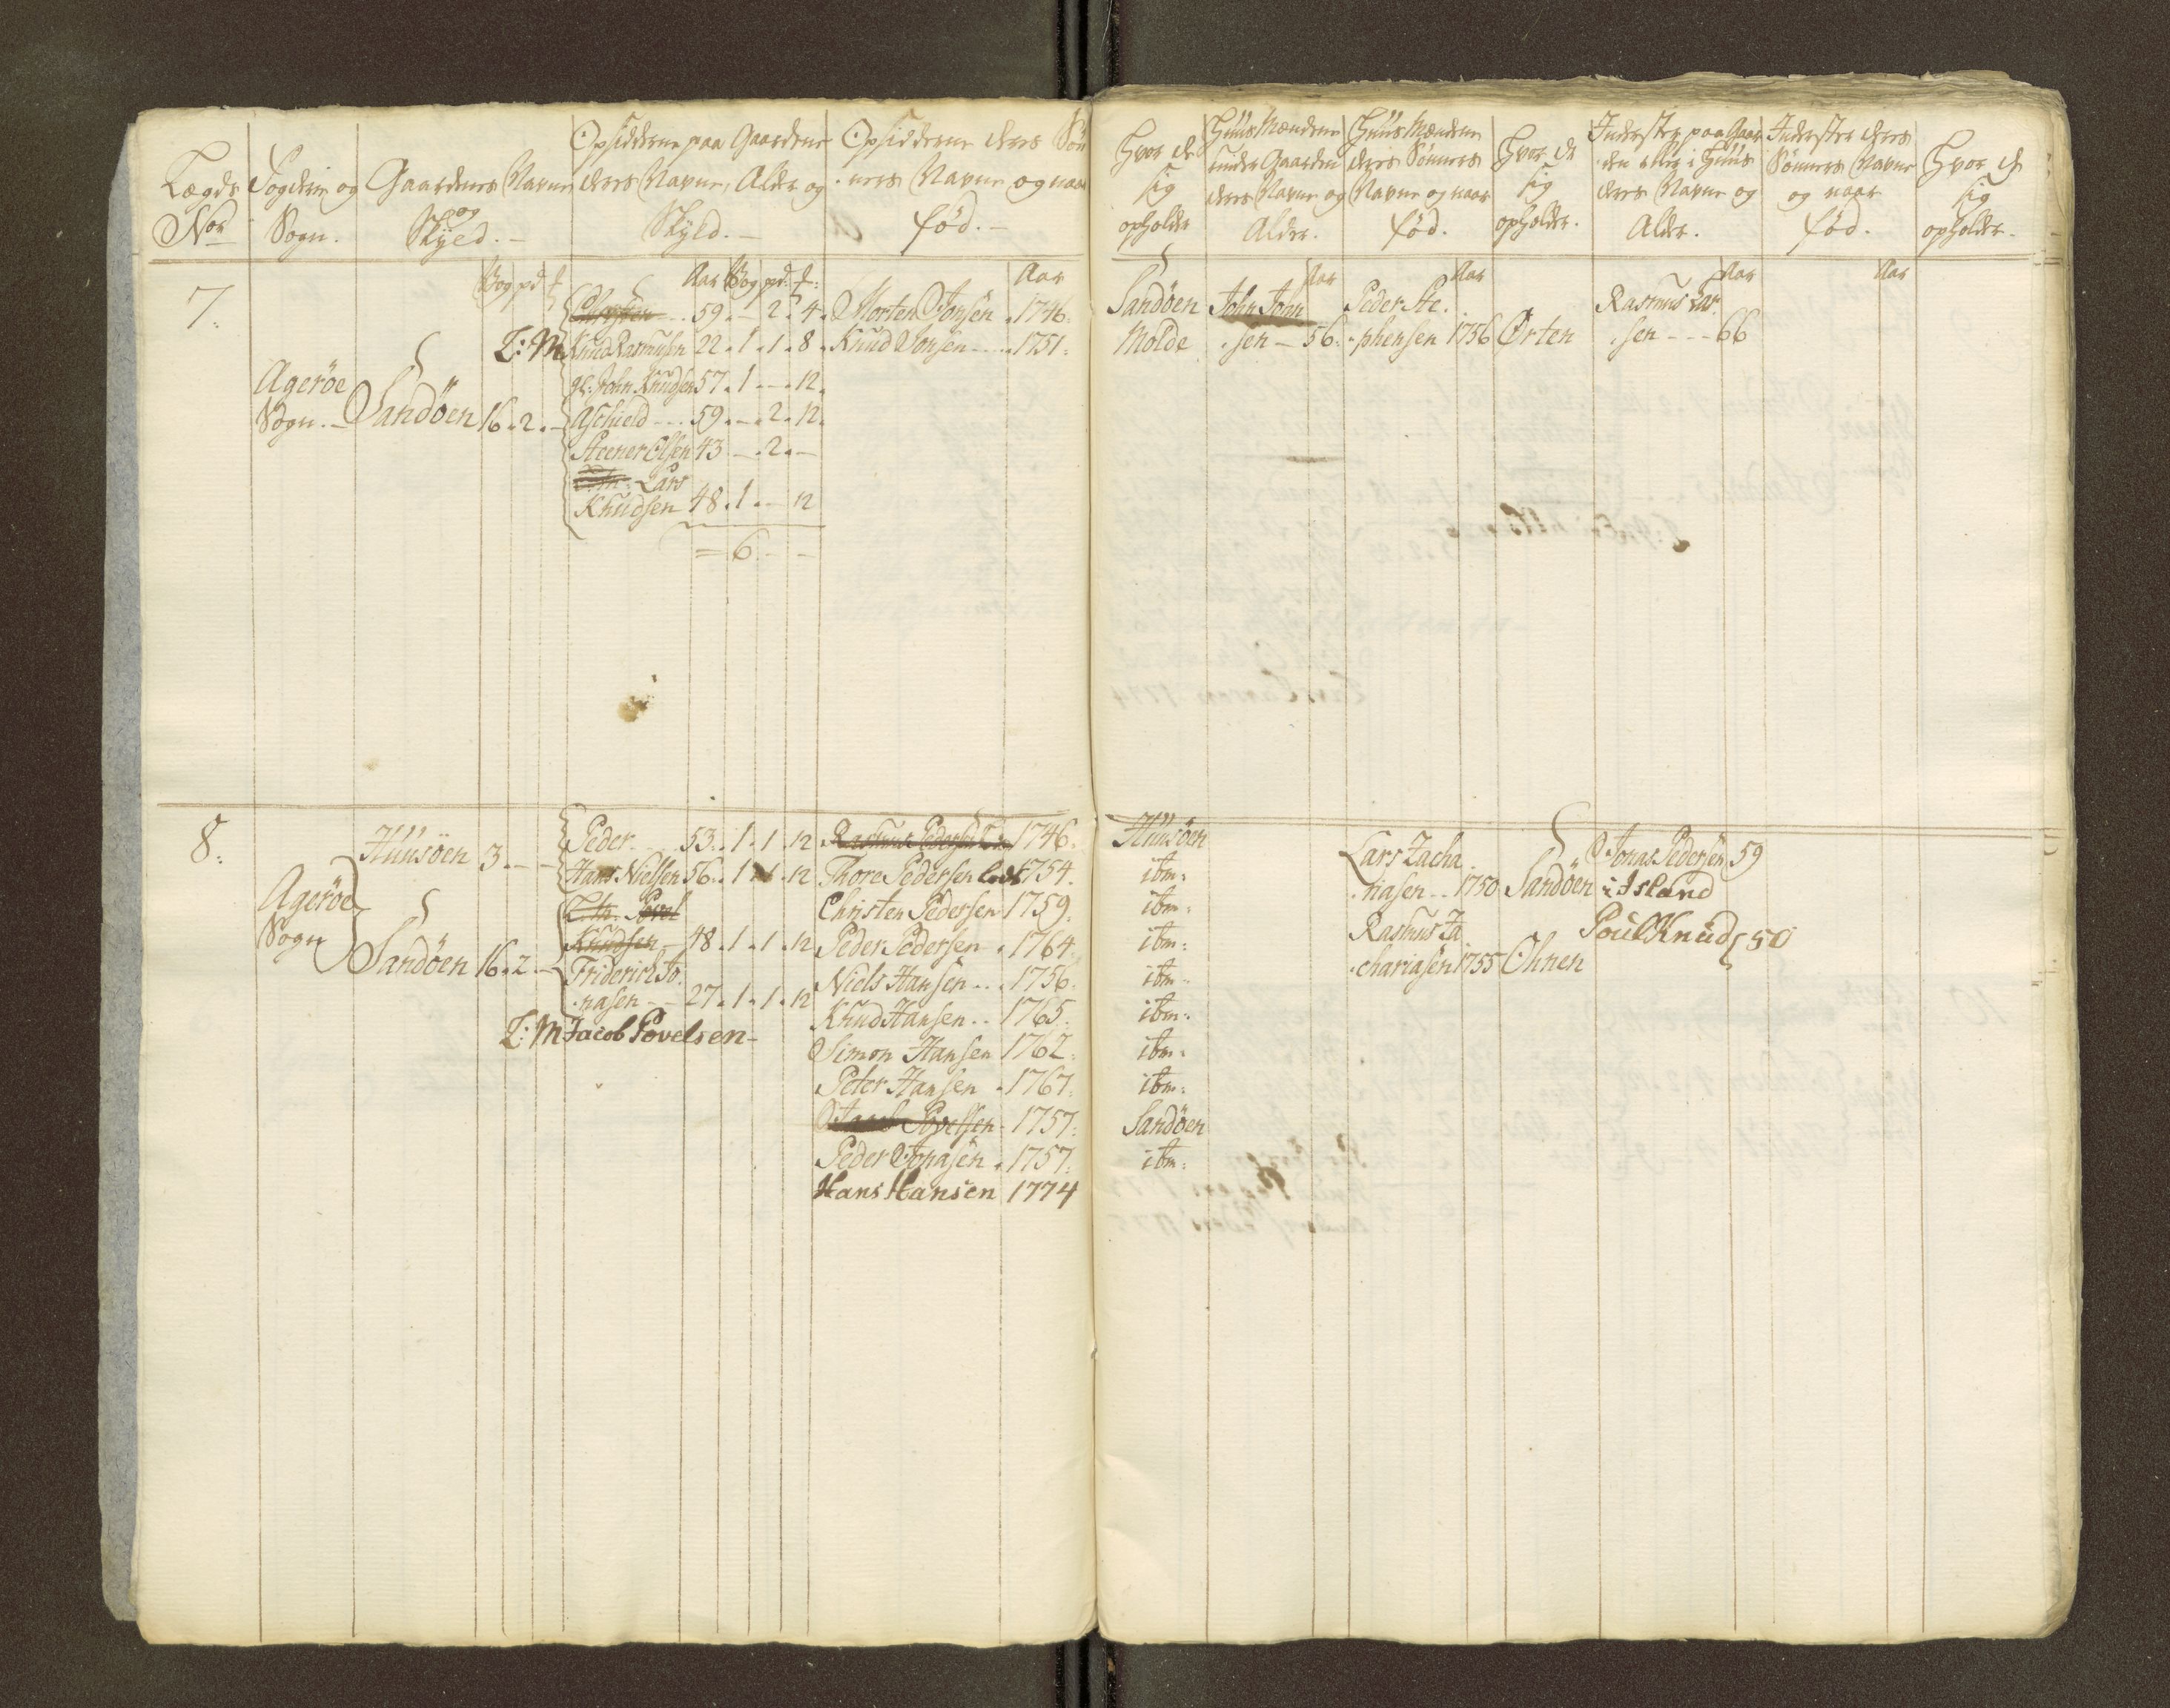 Lægds No
Fogderie og Sogn.
Gaardens Navne og Skyld.
Opsidderne paa Gaardene deres Navne, Alder og Skyld.
Opsidderne deres Sønners Navne og naar fød.
Hvor de sig opholder
HuusMændene under Gaarden deres Navne og Alder.
HuusMændene deres Sønners Navne og naar fød.
Hvor de sig opholder.
Inderster paa Gaarden eller i Huus deres Navne og Alder.
Inderster deres Sønners Navne og naar fød.
Hvor de sig opholder.
Vog pd
Aar Vog pd:
Aar
Aar
Aar
Aar
Aar
7.
Agerøe
Sogn.
Sandöen 16. 2. -
Christen .. 59. - 2. 4.
L: M Knud Rasmusen 22. 1. 1. 8.
gl. John Knudsen 57. 1. - . 12.
Aschield - - . 59. - . 2. 12.
Steener Olsen 43 - . 2. -
Lars
Knudsen 48. 1. - 12
= 6. - -
Morten Jonsen . 1746.
Knud Jonsen - . . 1751.
Sandöen
Molde
John John
. sen - 56.
Peder Ste.
. phensen 1756
Orten
Rasmus Lar.
. sen - - - 66
8.
Agerøe
Sogn
Huusöen 3. - -
Sandöen 16. 2. -
Peder - . . 53. . 1. 1. 12
Hans Nielsen 56. . 1. 1. 12
Povel
Knudsen 48. 1. 1. 12
Friderich Jo.
. nasen - - 27. 1. 1. 12
L: M Jacob Povelsen -
Rasmus Pedersen 1746.
Thore Pedersen 1754.
Christen Pedersen 1759.
Peder Pedersen . 1764.
Niels Hansen . . . 1756.
Knud Hansen . . 1765.
Simon Hansen 1762.
Peter Hansen . 1767.
Povelsen - 1757.
Peder Jonasen . 1757.
Hans Hansen 1774
Huusöen
ibm:
ibm:
ibm:
ibm:
ibm:
ibm:
ibm:
Sandöen
ibm:
Lars Zacha.
. riasen . . 1750 Sandöen
Rasmus Za
. chariasen 1755 Ohnen
Jonas Pedersen 59
i Island
Poul Knud 50